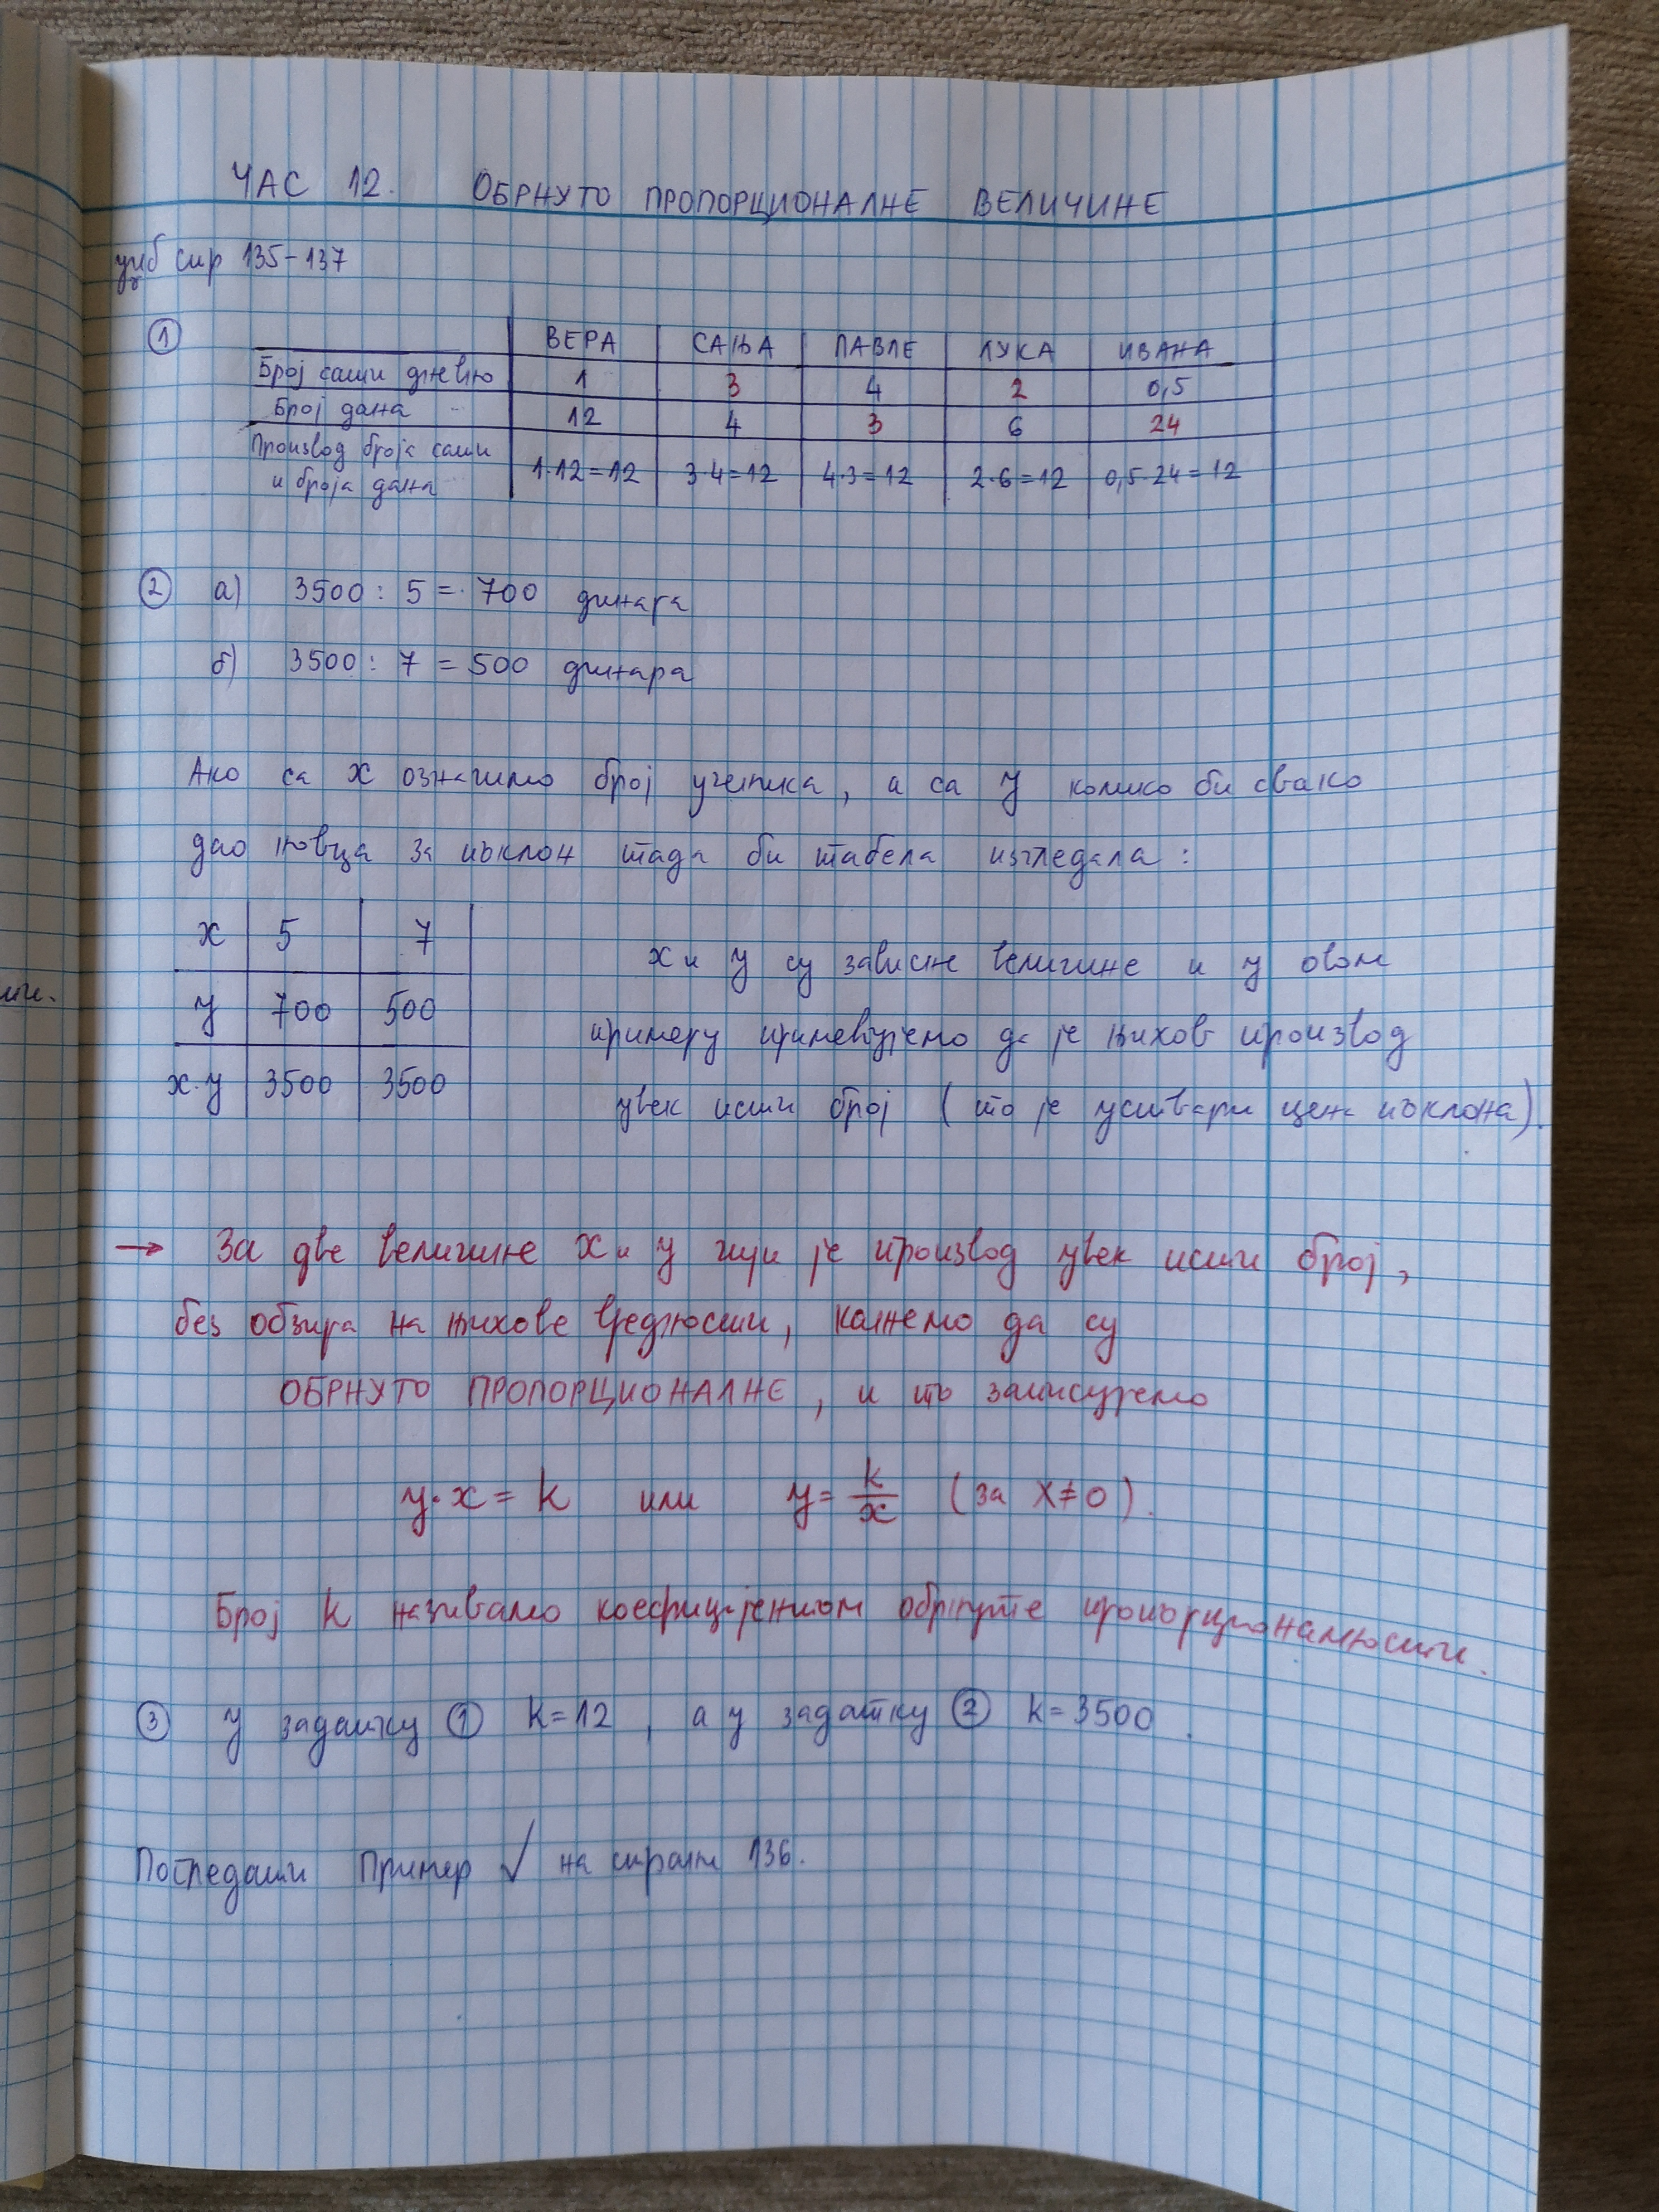 ЧАС 12. ОБРНУТО ПРОПОРЦИОНАЛНЕ ВЕЛИЧИНЕ
уџб стр 135-137
① ВЕРА САЊА ПАВЛЕ ЛУКА ИВАНА
Број сати дневно 1 3 4 2 0,5
Број дана 12 4 3 6 24
Производ броја сати и броја дана 1·12=12 3·4=12 4·3=12 2·6=12 0,5·24=12
② а) 3500 : 5 = 700 динара
б) 3500 : 7 = 500 динара
Ако са x означимо број ученика, а са y колико би свако
дао новца за поклон тада би табела изгледала :
x 5 7
y 700 500
x·y 3500 3500
x и y су зависне величине и у овом
примеру примећујемо да је њихов производ
увек исти број (то је уствари цена поклона).
→ За две величине x и y чији је производ увек исти број,
без обзира на њихове вредности, кажемо да су
ОБРНУТО ПРОПОРЦИОНАЛНЕ, и то записујемо
y·x = k или y = k/x (за x≠0).
Број k називамо коефицијентом обрнуте пропорционалности.
③ У задатку ① k=12, а у задатку ② k=3500.
Погледати Пример ✓ на страни 136.